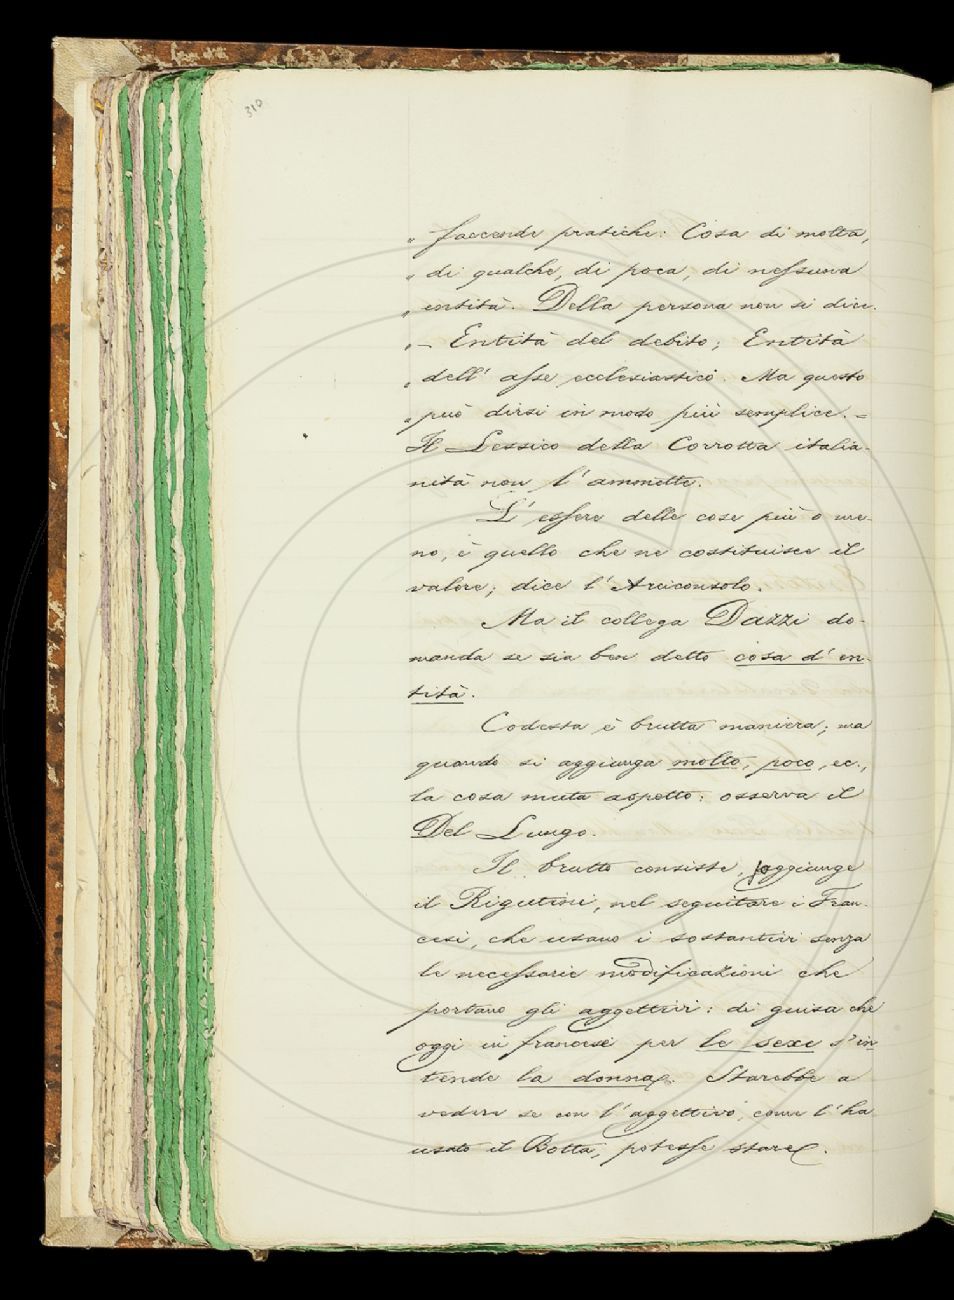 310
„ faccende pratiche: Cosa di molta,
„ di qualche, di poca, di nessuna
„ entità. Della persona non si dice.
„ — Entità del debito; Entità
„ dell' asse ecclesiastico. Ma questo
„ può dirsi in modo più semplice. =
Il Lessico della Corrotta italia-
nità non l'ammette.
L'essere delle cose più o me-
no, è quello che ne costituisce il
valore; dice l'Arciconsolo.
Ma il collega Dazzi do-
manda se sia ben detto cosa d'en-
tità.
Codesta è brutta maniera; ma
quando si aggiunga molto, poco, ec.,
la cosa muta aspetto: osserva il
Del Lungo.
Il brutto consiste, soggiunge
il Rigutini, nel seguitare i Fran-
cesi, che usano i sostantivi senza
le necessarie modificazioni che
portano gli aggettivi: di guisa che
oggi in francese per le sexe s'in-
tende la donna. Starebbe a
vedere se con l'aggettivo, come l'ha
usato il Botta, potesse stare.